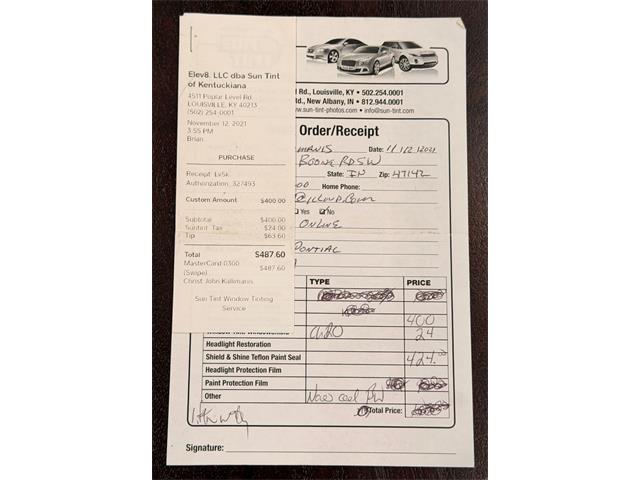 Elev8. LLC dba Sun Tint
of Kentuckiana
4511 Poplar Level Rd
LOUISVILLE, KY 40213
(502) 254-0001
November 12, 2021
3:55 PM
Brian
PURCHASE
Receipt: LvSk
Authorization: 327493
Custom Amount $400.00
Subtotal $400.00
Suntint Tax $24.00
Tip $63.60
Total $487.60
MasterCard 0300 $487.60
(Swipe)
Christ John Kallmanis
Sun Tint Window Tinting
Service
Rd., Louisville, KY • 502.254.0001
d., New Albany, IN • 812.944.0001
w.sun-tint-photos.com • info@sun-tint.com
Order/Receipt
manis Date: 11/12/2021
Boone RD SW
State: IN Zip: 47142
00 Home Phone:
@icloud.com
Yes No
Online
Pontiac
TYPE PRICE
400
24
Headlight Restoration
Shield & Shine Teflon Paint Seal 424.00
Headlight Protection Film
Paint Protection Film
Other
Total Price:
Signature: